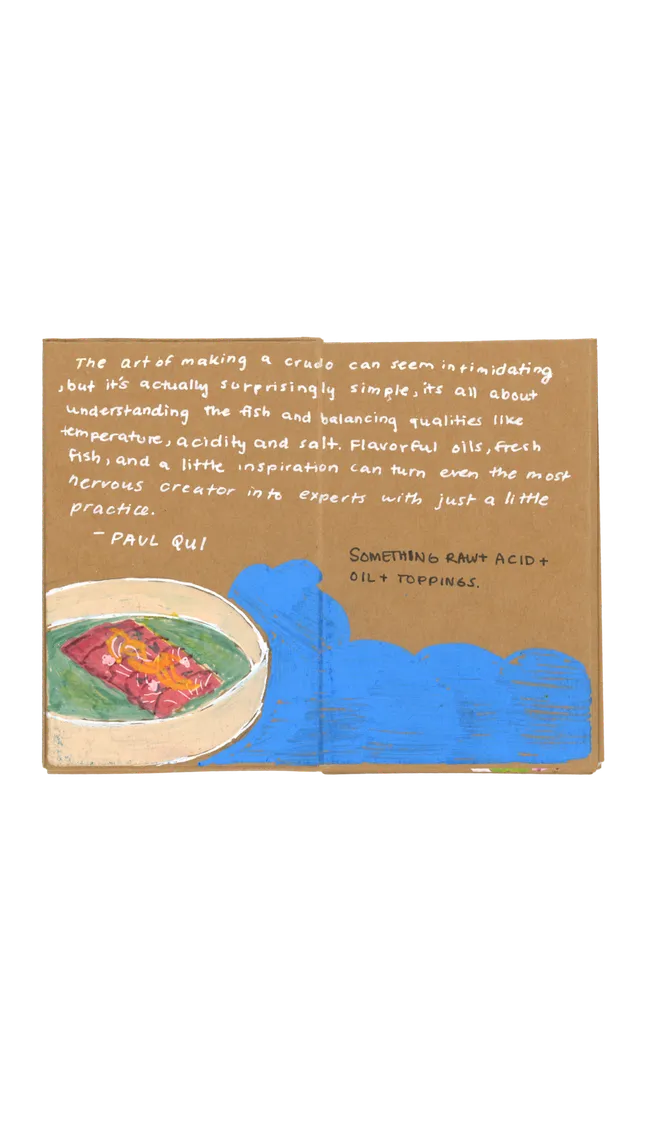 The art of making a crudo can seem intimidating
, but it's actually surprisingly simple, its all about
understanding the fish and balancing qualities like
temperature, acidity and salt. Flavorful oils, fresh
fish, and a little inspiration can turn even the most
nervous creator into experts with just a little
practice.
- PAUL QUI
SOMETHING RAW+ ACID +
OIL+ TOPPINGS.